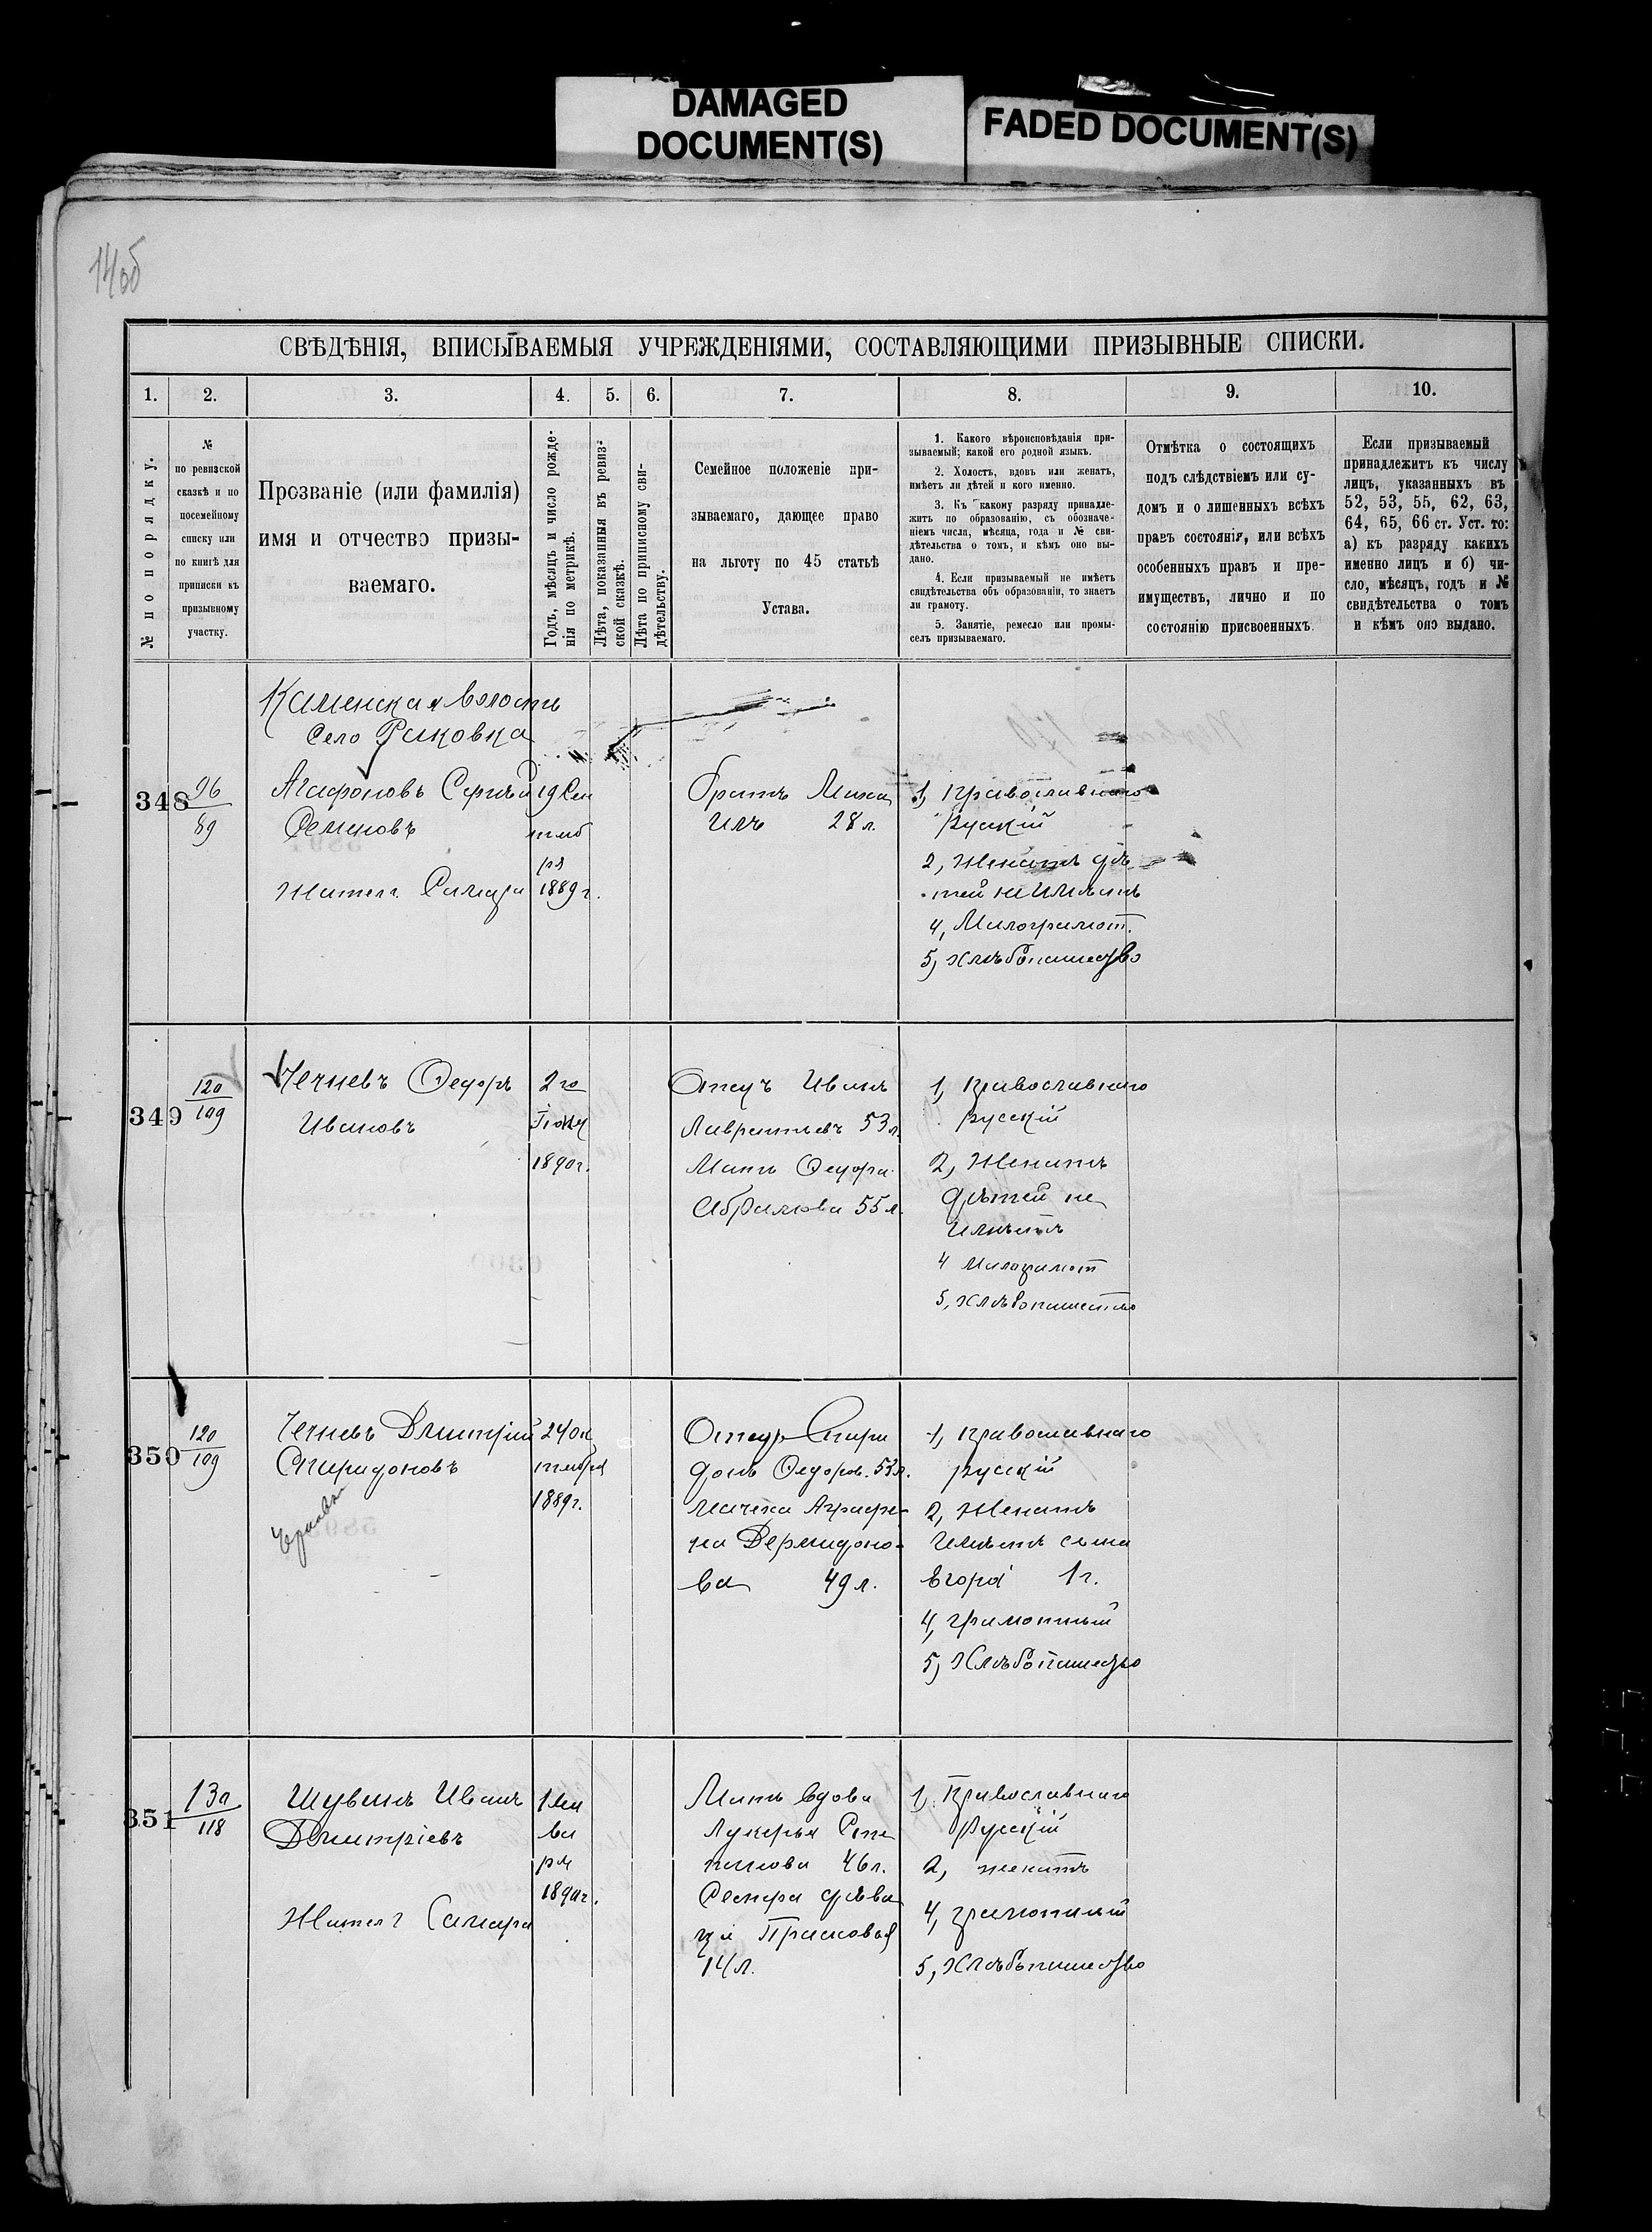 DAMAGED
DOCUMENT(S)
FADED DOCUMENT(S)
14об
СВѢДѢНІЯ, ВПИСЫВАЕМЫЯ УЧРЕЖДЕНІЯМИ, СОСТАВЛЯЮЩИМИ ПРИЗЫВНЫЕ СПИСКИ.
1. 2. 3. 4. 5. 6. 7. 8. 9. 10.
№ по порядку.
№
по ревизской
сказкѣ и по
посемейному
списку или
по книгѣ для
приписки къ
призывному
участку.
Прозваніе (или фамилія)
имя и отчество призы-
ваемаго.
Годъ, мѣсяцъ и число рожде-
нія по метрикѣ.
Лѣта, показанныя въ ревиз-
ской сказкѣ.
Лѣта по приписному сви-
дѣтельству.
Семейное положеніе при-
зываемаго, дающее право
на льготу по 45 статьѣ
Устава.
1. Какого вѣроисповѣданія при-
зываемый; какой его родной языкъ.
2. Холостъ, вдовъ или женатъ,
имѣетъ ли дѣтей и кого именно.
3. Къ какому разряду принадле-
житъ по образованію, съ обозначе-
ніемъ числа, мѣсяца, года и № сви-
дѣтельства о томъ, и кѣмъ оно вы-
дано.
4. Если призываемый не имѣетъ
свидѣтельства объ образованіи, то знаетъ
ли грамоту.
5. Занятіе, ремесло или промы-
селъ призываемаго.
Отмѣтка о состоящихъ
подъ слѣдствіемъ или су-
домъ и о лишенныхъ всѣхъ
правъ состоянія, или всѣхъ
особенныхъ правъ и пре-
имуществъ, лично и по
состоянію присвоенныхъ
Если призываемый
принадлежитъ къ числу
лицъ, указанныхъ въ
52, 53, 55, 62, 63,
64, 65, 66 ст. Уст. то:
а) къ разряду какихъ
именно лицъ и б) чи-
сло, мѣсяцъ, годъ и №
свидѣтельства о томъ
и кѣмъ оно выдано.
Каменская волость
Село Раковка
348
96
89
Агафоновъ Сергѣй
Семеновъ
Жител г. Самара
19 Сен
тяб
ря
1889 г.
братъ Миха
илъ 28 л.
1, православнаго
Русскій
2, Женатъ дѣ
тей не имѣетъ
4, Малограмот.
5, хлѣбопашество
349
120
109
Чечневъ Ѳедоръ
Ивановъ
2 го
Іюня
1890 г.
Отецъ Иванъ
Лаврентьевъ 53 л.
Мать Ѳедора
Абрамова 55 л.
1, православнаго
русскій
2, Женатъ
дѣтей не
имѣетъ
4 малограмот
5, хлѣбопашество
350
120
109
Чечневъ Дмитрій
Спиридоновъ
24 Ок
тября
1889 г.
Отецъ Спири
донъ Ѳедоров. 53 л.
мачеха Аграфе-
на Дермидоно-
ва 49 л.
1, православнаго
русскій
2, Женатъ
имѣетъ сына
Егора 1 г.
4, грамотный
5, Хлѣбопашество
351
130
118
Шувинъ Иванъ
Дмитріевъ
Жител г Самара
1 Ян
ва
ря
1890 г.
Мать вдова
Лукерья Сте
панова 46 л.
Сестра дѣви
ца Прасковья
14 л.
1, Православнаго
Русскій
2, женатъ
4, грамотный
5, Хлѣбопашество